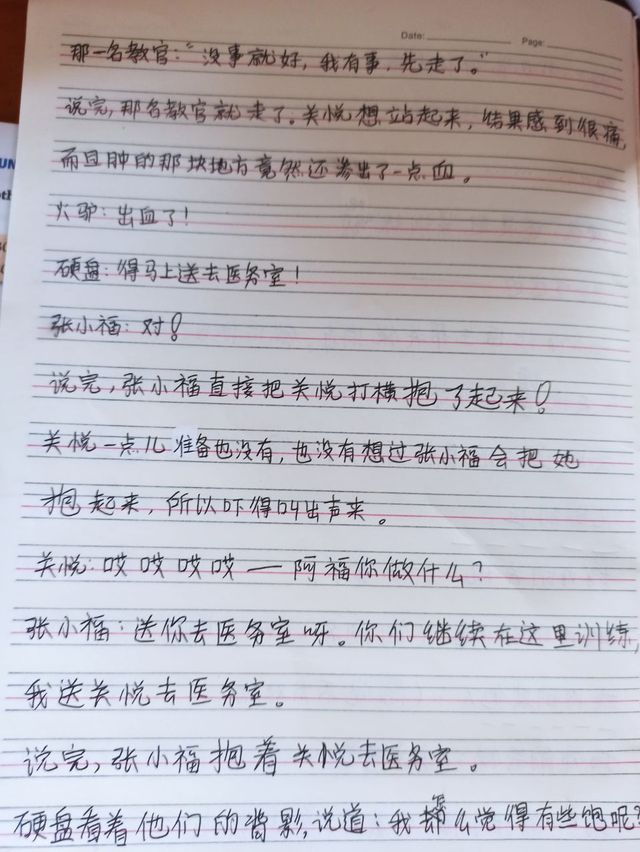 Date: Page:
那一名教官：“没事就好，我有事，先走了。”
说完，那名教官就走了。关悦想站起来，结果感到很痛，
而且肿的那块地方竟然还渗出了一点血。
火驴：出血了！
硬盘：得马上送去医务室！
张小福：对！
说完，张小福直接把关悦打横抱了起来！
关悦一点儿准备也没有，也没有想过张小福会把她
抱起来，所以吓得叫出声来。
关悦：哎哎哎哎——阿福你做什么？
张小福：送你去医务室呀。你们继续在这里训练，
我送关悦去医务室。
说完，张小福抱着关悦去医务室。
硬盘看着他们的背影，说道：我怎么觉得有些饱呢？
UN